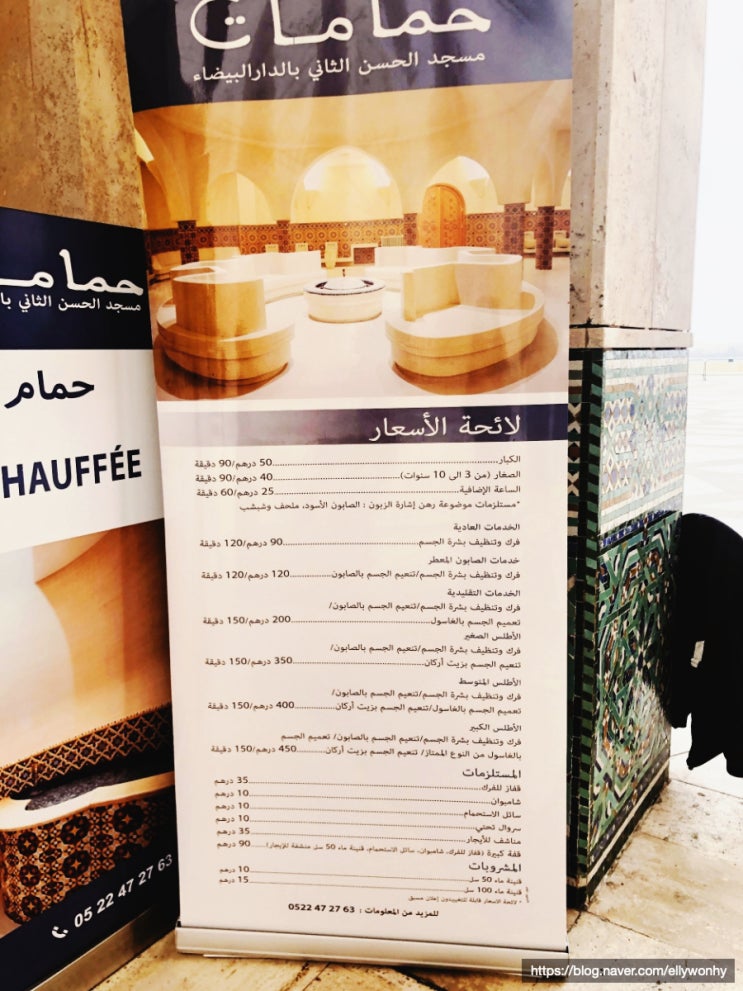 حمامات
مسجد الحسن الثاني بالدارالبيضاء
لائحة الأسعار
الكبار....................50 درهم/90 دقيقة
الصغار (من 3 الى 10 سنوات)....................40 درهم/90 دقيقة
الساعة الإضافية....................25 درهم/60 دقيقة
*مستلزمات موضوعة رهن إشارة الزبون : الصابون الأسود، ملحف وشبشب
الخدمات العادية
فرك وتنظيف بشرة الجسم....................90 درهم/120 دقيقة
خدمات الصابون المعطر
فرك وتنظيف بشرة الجسم/تنعيم الجسم بالصابون....................120 درهم/120 دقيقة
الخدمات التقليدية
فرك وتنظيف بشرة الجسم/تنعيم الجسم بالصابون/
تعميم الجسم بالغاسول....................200 درهم/150 دقيقة
الأطلس الصغير
فرك وتنظيف بشرة الجسم/تنعيم الجسم بالصابون/
تنعيم الجسم بزيت أركان....................350 درهم/150 دقيقة
الأطلس المتوسط
فرك وتنظيف بشرة الجسم/تنعيم الجسم بالصابون/
تعميم الجسم بالغاسول/تنعيم الجسم بزيت أركان....................400 درهم/150 دقيقة
الأطلس الكبير
فرك وتنظيف بشرة الجسم/تنعيم الجسم بالصابون/ تعميم الجسم
بالغاسول من النوع الممتاز/ تنعيم الجسم بزيت أركان....................450 درهم/150 دقيقة
المستلزمات
قفاز للفرك....................35 درهم
شامبوان....................10 درهم
سائل الاستحمام....................10 درهم
سروال تحتي....................10 درهم
مناشف للأيجار....................35 درهم
قفة كبيرة (قفاز للفرك، شامبوان، سائل الاستحمام، قنينة ماء 50 سل منشفة للإيجار)....................90 درهم
المشروبات
قنينة ماء 50 سل....................10 درهم
قنينة ماء 100 سل....................15 درهم
* لائحة الاسعار قابلة للتغيير دون إعلان مسبق
للمزيد من المعلومات : 0522 47 27 63
حمامـ
مسجد الحسن الثاني با
حمام
HAUFFÉE
05 22 47 27 63
https://blog.naver.com/ellywonhy